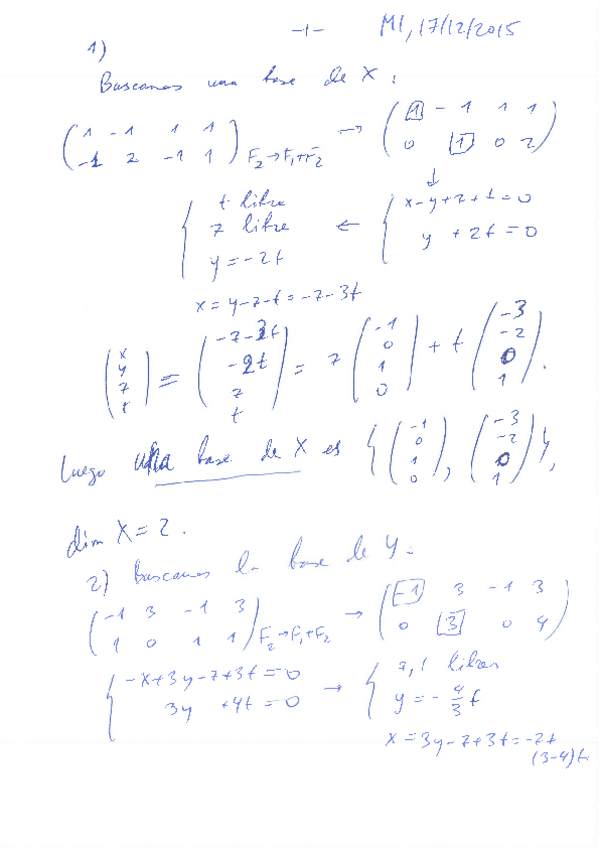 -1- MI, 17/12/2015
1)
Buscamos una base de X :
( 1 -1 1 1 ; -1 2 -1 1 ) F₂→F₁+F₂ → ( 1 -1 1 1 ; 0 1 0 2 )
↓
{ t libre ; z libre ; y = -2t ← { x-y+z+t=0 ; y +2t=0
x = y-z-t = -z-3t
( x ; y ; z ; t ) = ( -z-3t ; -2t ; z ; t ) = z ( -1 ; 0 ; 1 ; 0 ) + t ( -3 ; -2 ; 0 ; 1 ) .
Luego una base de X es { ( -1 ; 0 ; 1 ; 0 ) , ( -3 ; -2 ; 0 ; 1 ) } ,
dim X = 2 .
2) Buscamos la base de Y :
( -1 3 -1 3 ; 1 0 1 1 ) F₂→F₁+F₂ → ( -1 3 -1 3 ; 0 3 0 4 )
{ -x+3y-z+3t=0 ; 3y +4t=0 → { z, t libres ; y = - 4/3 t
x = 3y-z+3t = -z+
(3-4)t